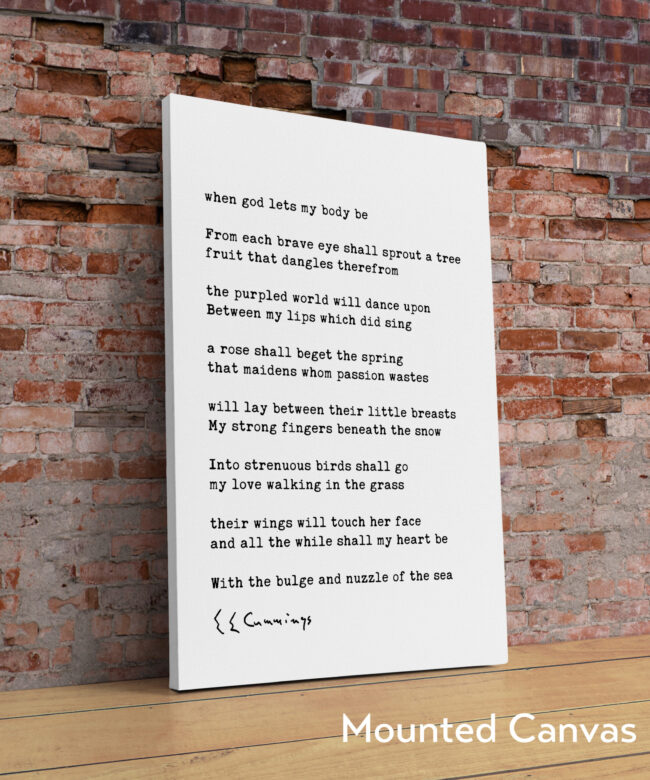 when god lets my body be
From each brave eye shall sprout a tree
fruit that dangles therefrom
the purpled world will dance upon
Between my lips which did sing
a rose shall beget the spring
that maidens whom passion wastes
will lay between their little breasts
My strong fingers beneath the snow
Into strenuous birds shall go
my love walking in the grass
their wings will touch her face
and all the while shall my heart be
With the bulge and nuzzle of the sea
E E Cummings
Mounted Canvas